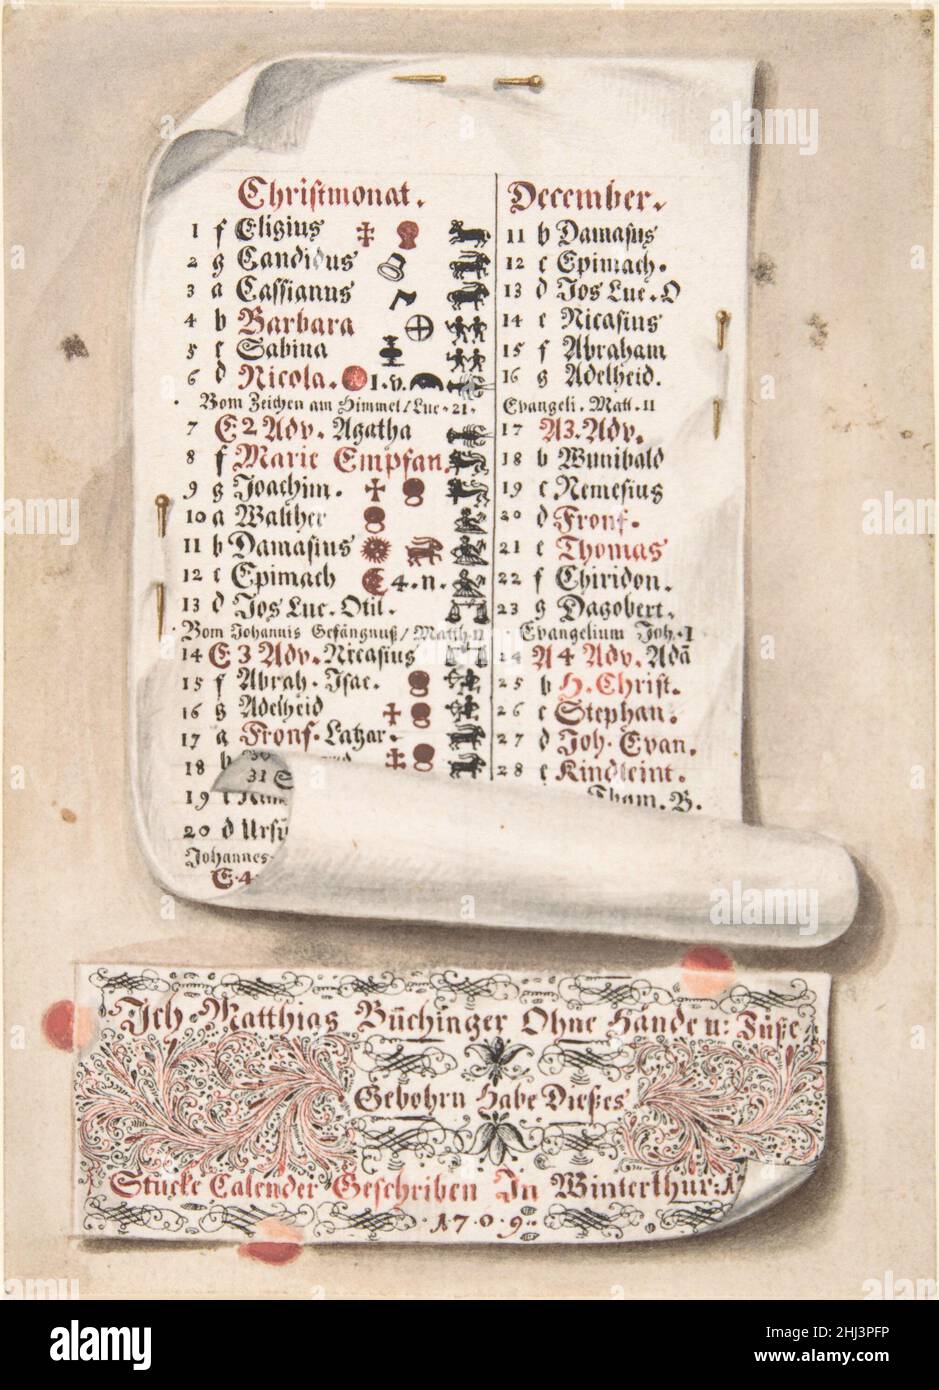 Christmonat.
1 f Eligius
2 g Candidus
3 a Cassianus
4 b Barbara
5 c Sabina
6 d Nicola. 1.v.
Vom Zeichen am Himmel/Luc.21.
7 E 2 Adv. Agatha
8 f Marie Empfan.
9 g Joachim.
10 a Walther
11 b Damasius
12 c Epimach 4.n.
13 d Jos Luc. Otil.
Vom Johannis Gefängnuß/Matth.11
14 E 3 Adv. Nicasius
15 f Abrah. Isac.
16 g Adelheid
17 a Fronf. Latzar.
18 b
31 S
19 c
20 d Ursi
Johannes
E.4
December.
11 b Damasus
12 c Epimach.
13 d Jos Luc. O
14 e Nicasius
15 f Abraham
16 g Adelheid.
Evangeli. Matt. 11
17 A 3. Adv.
18 b Wunibald
19 c Nemesius
20 d Fronf.
21 e Thomas
22 f Chiridon.
23 g Dagobert.
Evangelium Joh. I
24 A 4 Adv. Adā
25 b H. Christ.
26 c Stephan.
27 d Joh. Evan.
28 e Kindleint.
Tham. B.
Ich Matthias Büchinger Ohne Hände u: Füße
Gebohrn Habe Dießes
Stücke Calender Geschriben In Winterthur: 17
1709.
alamy
Image ID: 2HJ3PFP
www.alamy.com